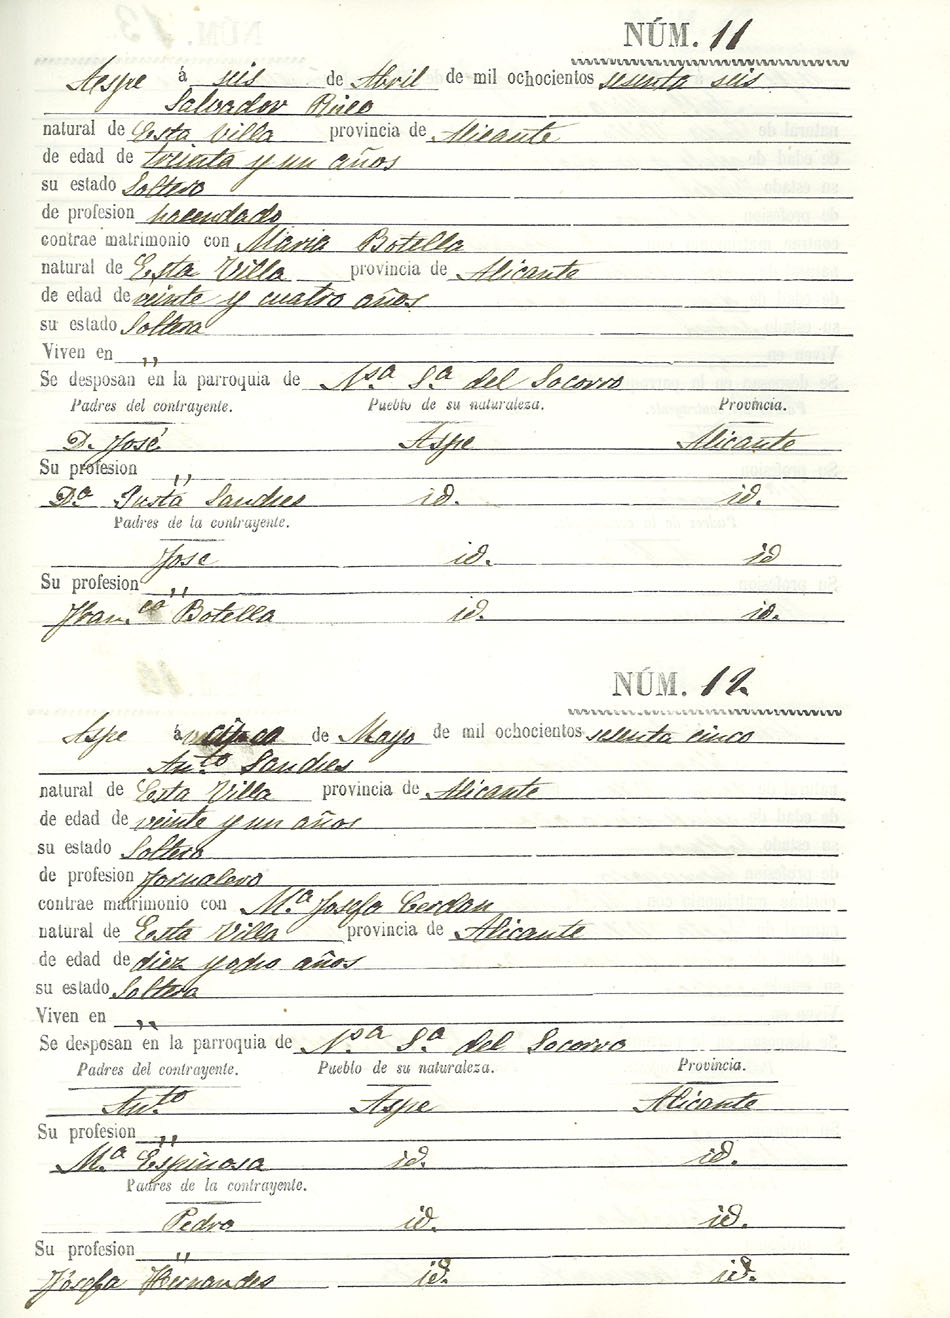 NÚM. 11
Aspe á seis de Abril de mil ochocientos sesenta seis
Salvador Rico
natural de Esta Villa provincia de Alicante
de edad de treinta y un años
su estado Soltero
de profesion hacendado
contrae matrimonio con Maria Botella
natural de Esta Villa provincia de Alicante
de edad de veinte y cuatro años
su estado Soltera
Viven en ,,
Se desposan en la parroquia de Nsa Sa del Socorro
Padres del contrayente. Pueblo de su naturaleza. Provincia.
D. José Aspe Alicante
Su profesion ,,
Da Justa Sandres id. id.
Padres de la contrayente.
Jose id. id
Su profesion ,,
Fran.ca Botella id. id.
NÚM. 12.
Aspe á de Mayo de mil ochocientos sesenta cinco
Anto Sandres
natural de Esta Villa provincia de Alicante
de edad de veinte y un años
su estado Soltero
de profesion Jornalero
contrae matrimonio con M.a Josefa Cerdan
natural de Esta Villa provincia de Alicante
de edad de diez y ocho años
su estado Soltera
Viven en ,,
Se desposan en la parroquia de Nsa Sa del Socorro
Padres del contrayente. Pueblo de su naturaleza. Provincia.
Anto Aspe Alicante
Su profesion ,,
M.a Espinosa id. id.
Padres de la contrayente.
Pedro id. id.
Su profesion ,,
Josefa Hernandes id. id.